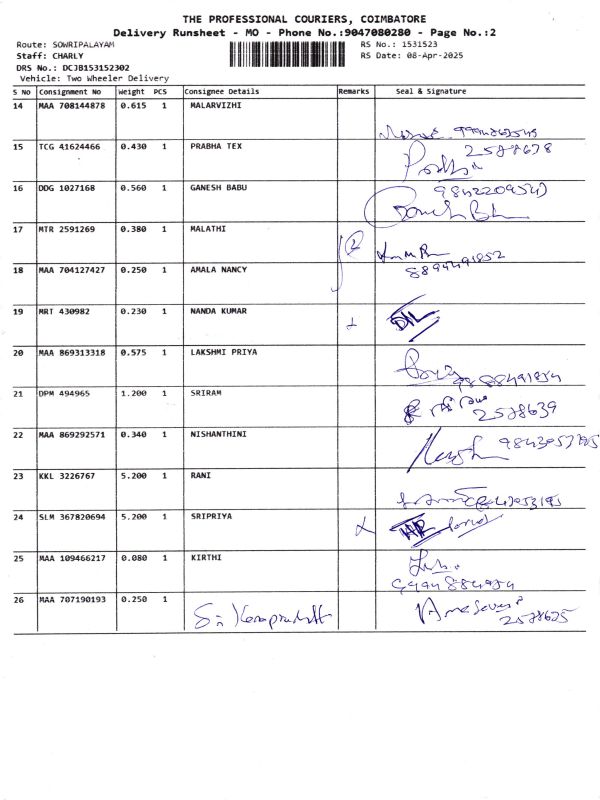 THE PROFESSIONAL COURIERS, COIMBATORE
Delivery Runsheet - MO - Phone No.:9047080280 - Page No.:2
Route: SOWRIPALAYAM RS No.: 1531523
Staff: CHARLY RS Date: 08-Apr-2025
DRS No.: DCJB153152302
Vehicle: Two Wheeler Delivery
S No Consignment No Weight PCS Consignee Details Remarks Seal & Signature
14 MAA 708144878 0.615 1 MALARVIZHI
15 TCG 41624466 0.430 1 PRABHA TEX 2578678
16 DDG 1027168 0.560 1 GANESH BABU
17 MTR 2591269 0.380 1 MALATHI
8894491852
18 MAA 704127427 0.250 1 AMALA NANCY
19 MRT 430982 0.230 1 NANDA KUMAR D/L
20 MAA 869313318 0.575 1 LAKSHMI PRIYA
21 DPM 494965 1.200 1 SRIRAM 2578639
22 MAA 869292571 0.340 1 NISHANTHINI
23 KKL 3226767 5.200 1 RANI
24 SLM 367820694 5.200 1 SRIPRIYA
25 MAA 109466217 0.080 1 KIRTHI
9994884954
26 MAA 707190193 0.250 1
2578625